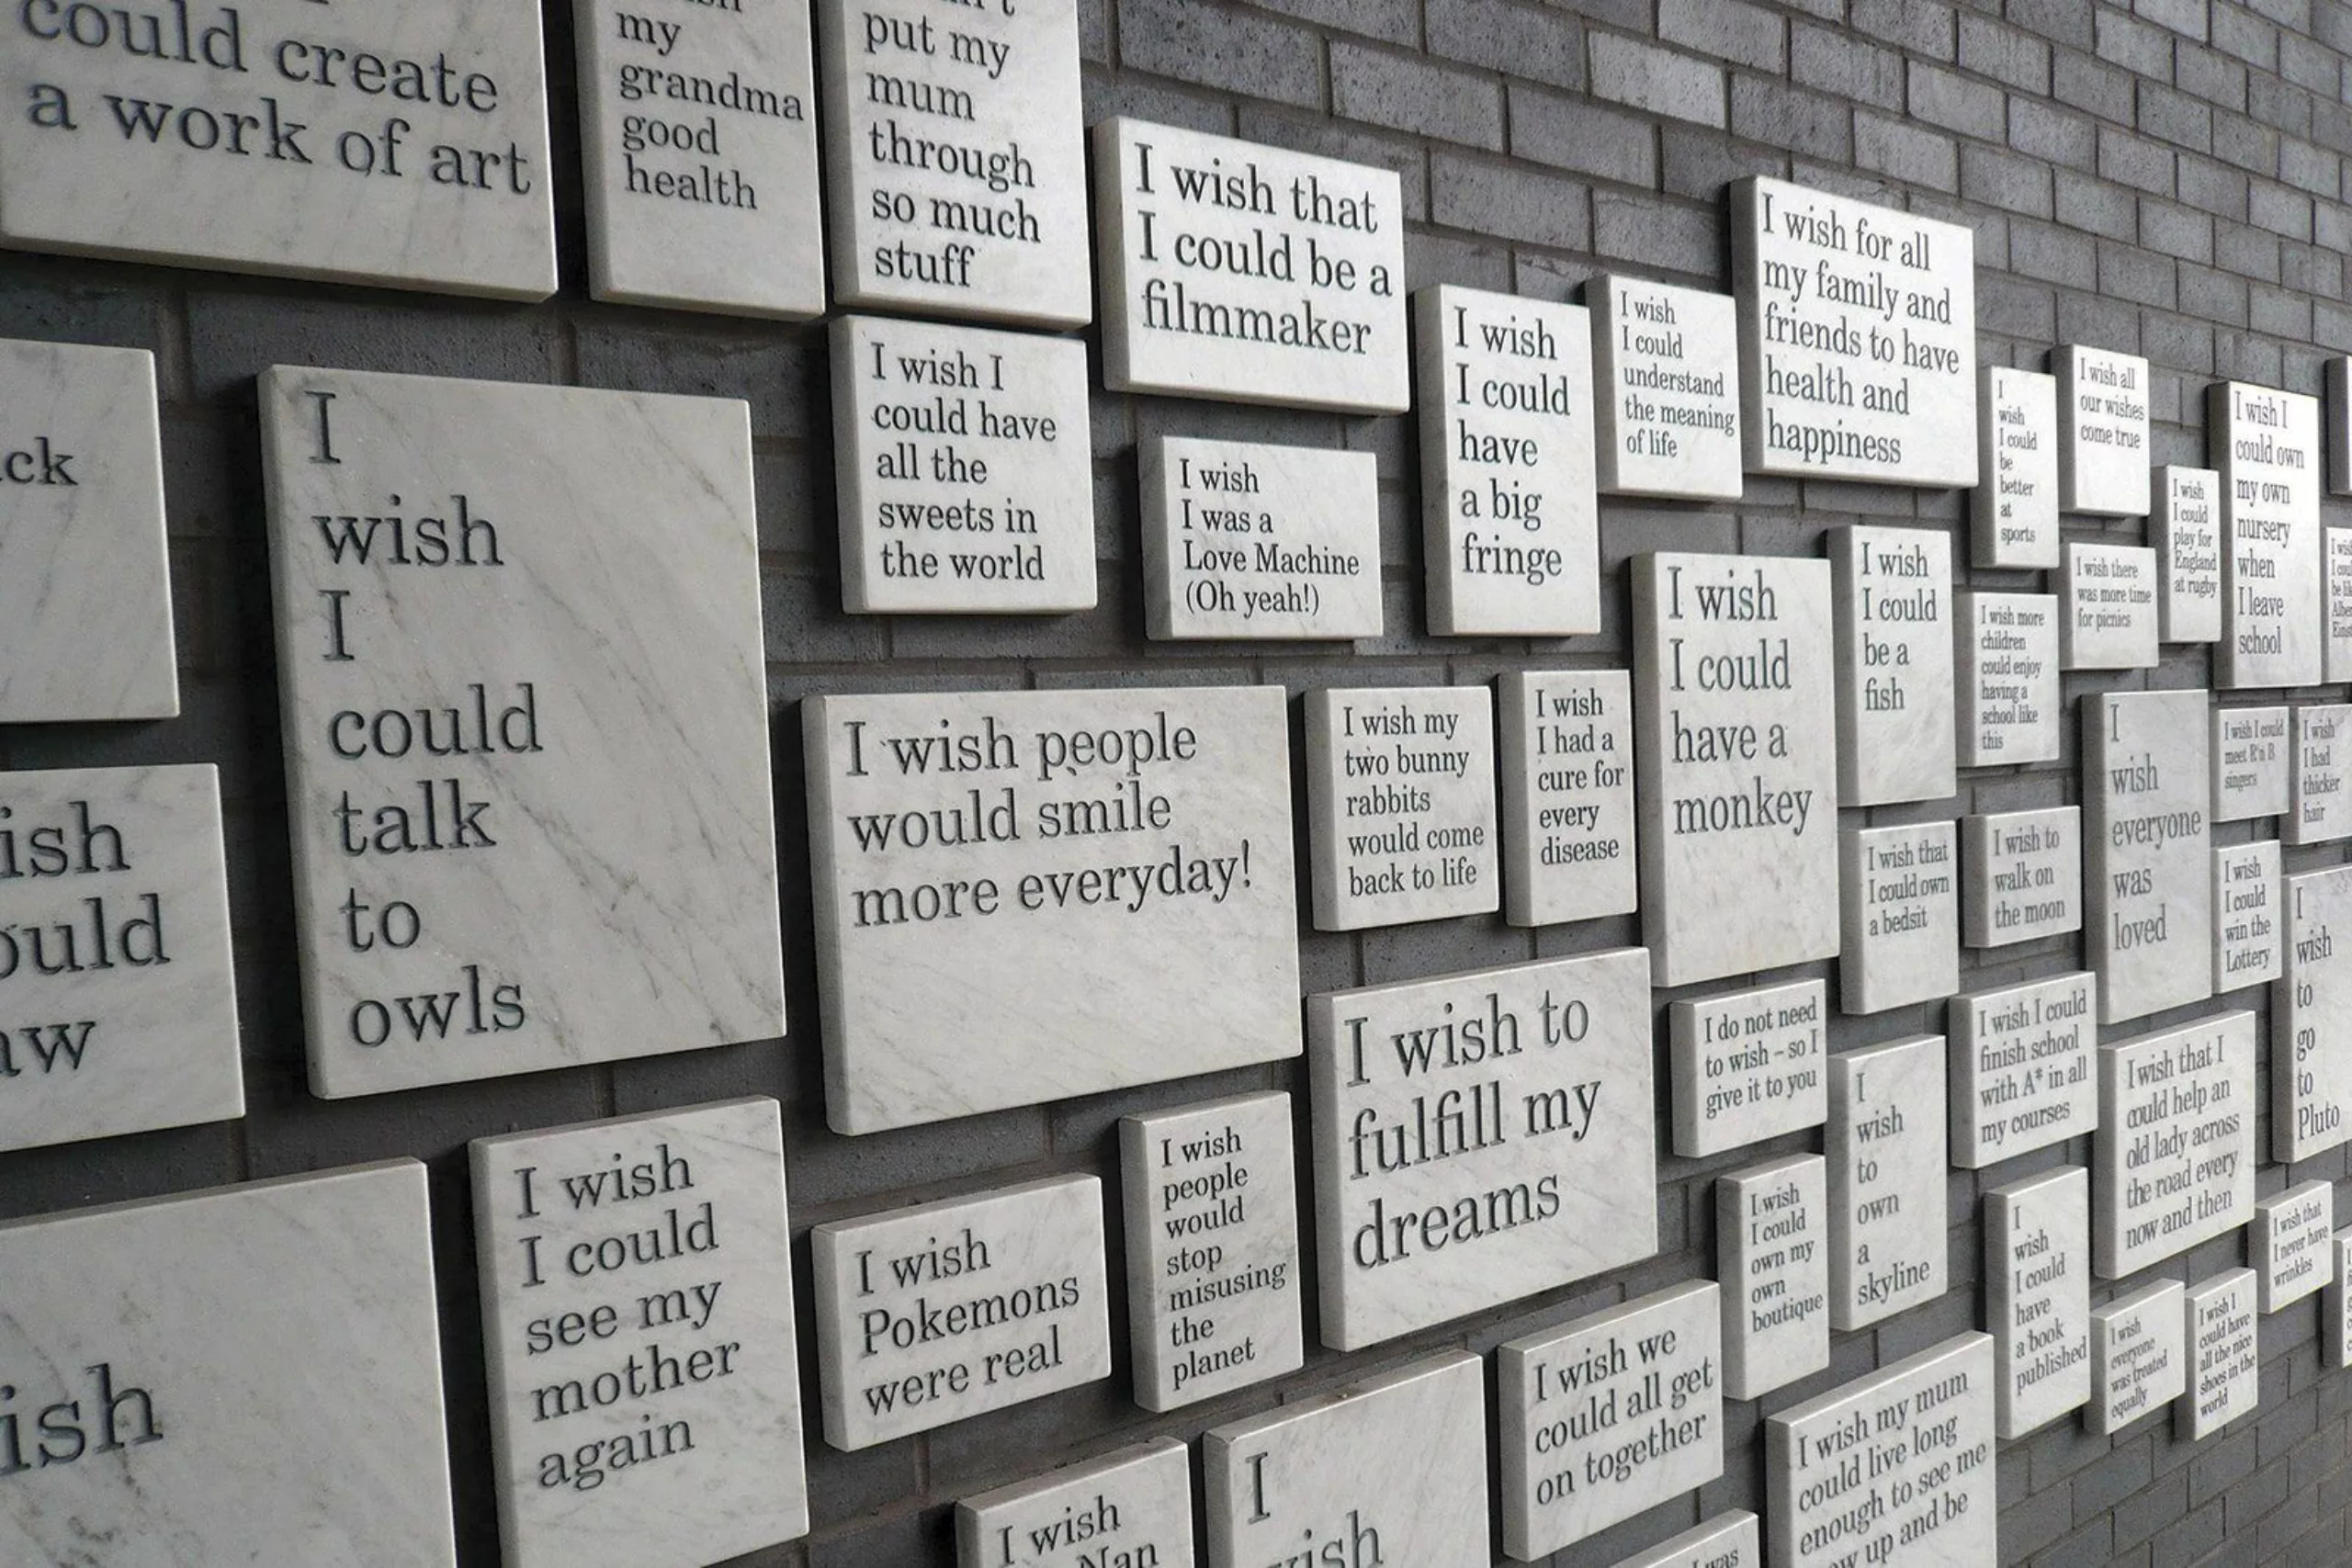 could create
a work of art
my
grandma
good
health
put my
mum
through
so much
stuff
I wish that
I could be a
filmmaker
I wish
I could
have
a big
fringe
I wish
I could
understand
the meaning
of life
I wish for all
my family and
friends to have
health and
happiness
I
wish
I could
be
better
at
sports
I wish all
our wishes
come true
I wish
I could
play for
England
at rugby
I wish I
could own
my own
nursery
when
I leave
school
I
wish
I
could
talk
to
owls
I wish I
could have
all the
sweets in
the world
I wish
I was a
Love Machine
(Oh yeah!)
I wish people
would smile
more everyday!
I wish my
two bunny
rabbits
would come
back to life
I wish
I had a
cure for
every
disease
I wish
I could
have a
monkey
I wish
I could
be a
fish
I wish more
children
could enjoy
having a
school like
this
I wish there
was more time
for picnics
I
wish
everyone
was
loved
I wish I could
meet R'n B
singers
I wish
I had
thicker
hair
I wish that
I could own
a bedsit
I wish to
walk on
the moon
I wish
I could
win the
Lottery
I
wish
to
go
to
Pluto
I wish
I could
see my
mother
again
I wish
Pokemons
were real
I wish
people
would
stop
misusing
the
planet
I wish to
fulfill my
dreams
I do not need
to wish – so I
give it to you
I wish
I could
own my
own
boutique
I
wish
to
own
a
skyline
I wish I could
finish school
with A* in all
my courses
I wish that I
could help an
old lady across
the road every
now and then
I wish that
I never have
wrinkles
I
wish
I could
have
a book
published
I wish
everyone
was treated
equally
I wish I
could have
all the nice
shoes in the
world
I wish
Nan
I
I wish we
could all get
on together
I wish my mum
could live long
enough to see me
up and be